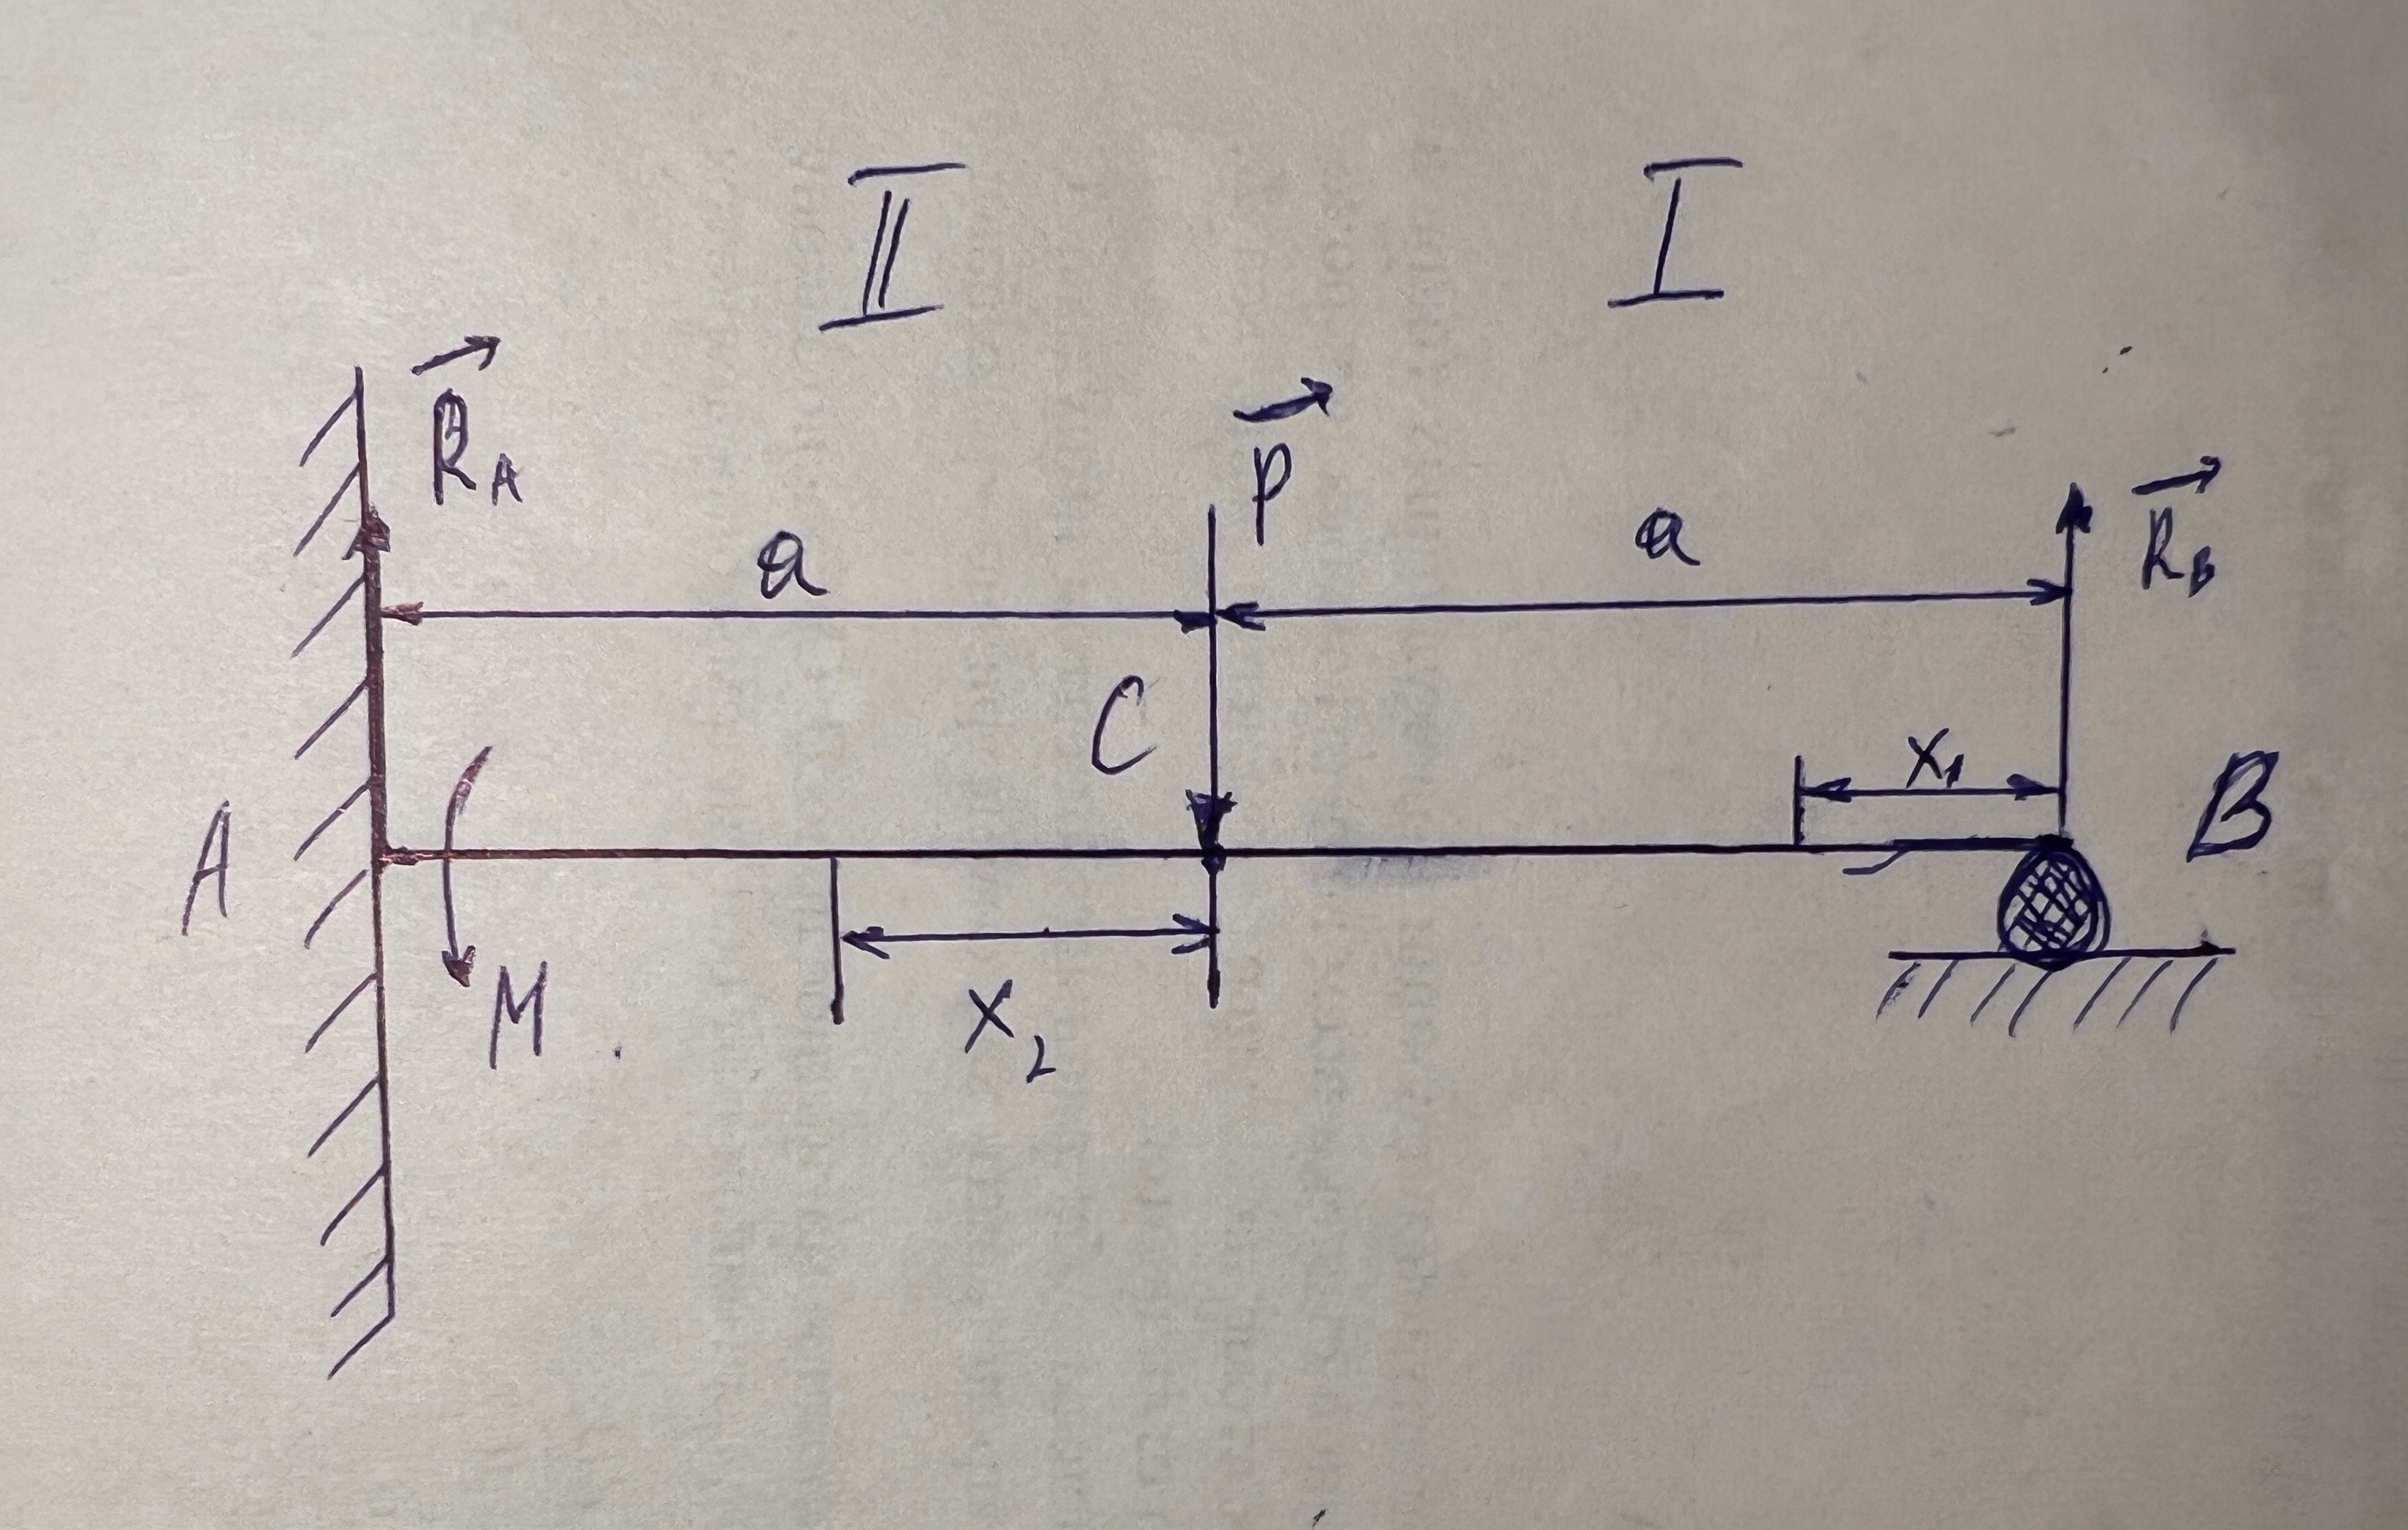 II
I
R_A
P
R_B
a
a
C
x₁
A
B
M
x₂